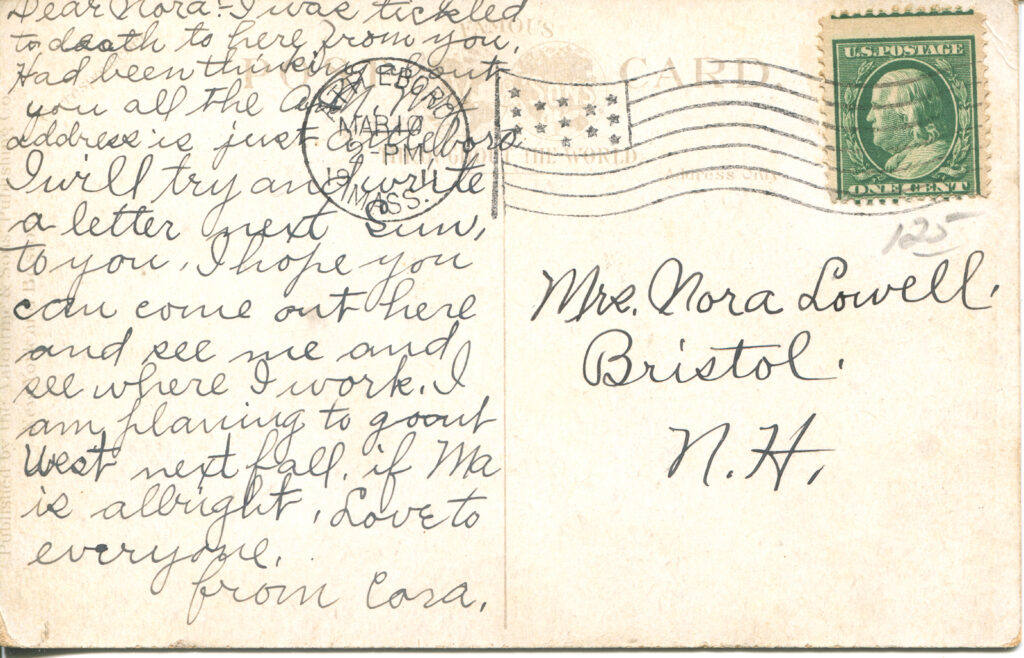 Dear Nora:- I was tickled
to death to here from you.
Had been thinking about
you all the
address is just
I will try and write
a letter next Sun,
to you. I hope you
can come out here
and see me and
see where I work. I
am planing to go out
West next fall, if Ma
is allright. Love to
everyone.
from Cora.
FAMOUS
POST CARD
THROUGHOUT THE WORLD
Address Only
MAR 10
2-PM
19 11
MASS.
U.S. POSTAGE
ONE CENT
125
Mrs. Nora Lowell.
Bristol.
N.H.